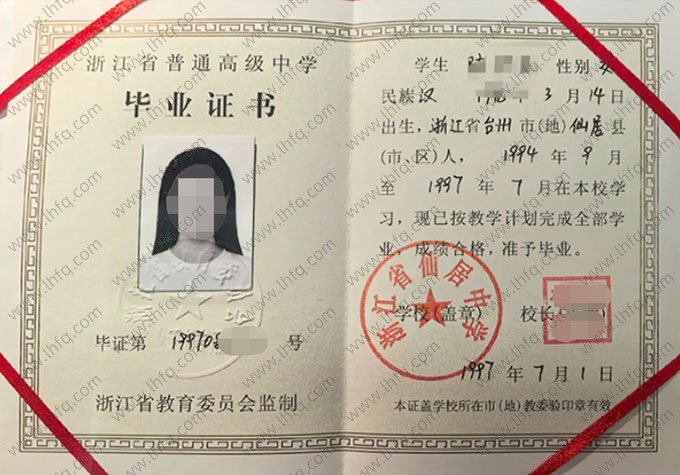 浙江省普通高级中学
毕业证书
毕证第 19970 号
浙江省教育委员会监制
学生 性别 女
民族 汉 3 月 14 日
出生，浙江省台州市(地)仙居县
(市、区)人， 1994 年 9 月
至 1997 年 7 月在本校学
习，现已按教学计划完成全部学
业，成绩合格，准予毕业。
浙江省仙居中学
学校(盖章) 校长
1997 年 7 月 1 日
本证盖学校所在市(地)教委验印章有效
www.lhfq.com